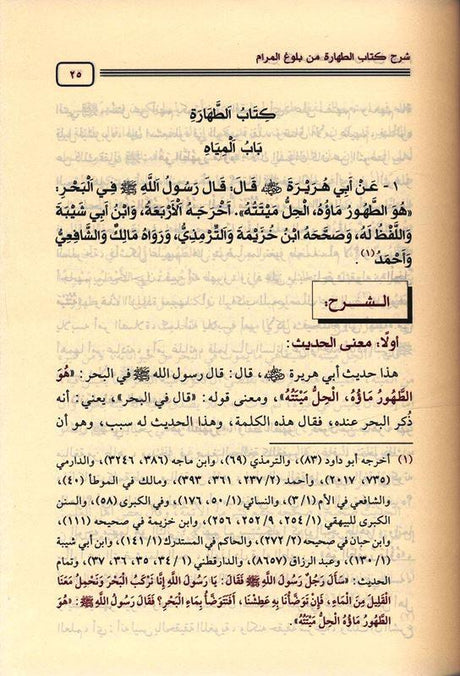 شرح كتاب الطهارة من بلوغ المرام
٢٥
كِتَابُ اَلطَّهَارَةِ
بَابُ اَلْمِيَاهِ
١- عَنْ أَبِي هُرَيْرَةَ ﵁ قَالَ: قَالَ رَسُولُ اَللَّهِ ﷺ فِي اَلْبَحْرِ:
«هُوَ اَلطَّهُورُ مَاؤُهُ، اَلْحِلُّ مَيْتَتُهُ». أَخْرَجَهُ اَلْأَرْبَعَةُ، وَابْنُ أَبِي شَيْبَةَ
وَاللَّفْظُ لَهُ، وَصَحَّحَهُ ابْنُ خُزَيْمَةَ وَاَلتِّرْمِذِيُّ، وَرَوَاهُ مَالِكٌ وَالشَّافِعِيُّ
وَأَحْمَدُ(١).
الـشـرح:
أولًا: معنى الحديث:
هذا حديث أبي هريرة ﵁، قال: قال رسول الله ﷺ في البحر: «هُوَ
الطَّهُورُ مَاؤُهُ، الْحِلُّ مَيْتَتُهُ»، ومعنى قوله: «قال في البحر»، يعني: أنه
ذُكر البحر عنده، فقال هذه الكلمة، وهذا الحديث له سبب، وهو أن
(١) أخرجه أبو داود (٨٣)، والترمذي (٦٩)، وابن ماجه (٣٨٦، ٣٢٤٦)، والدارمي
(٧٣٥، ٢٠١٧)، وأحمد (٢/ ٢٣٧، ٣٦١، ٣٩٣)، ومالك في الموطأ (٤٠)،
والشافعي في الأم (١/ ٣)، والنسائي (١/ ٥٠، ١٧٦)، وفي الكبرى (٥٨)، والسنن
الكبرى للبيهقي (١/ ٢٥٤، ٩/ ٢٥٢، ٢٥٦)، وابن خزيمة في صحيحه (١١١)،
وابن حبان في صحيحه (٢/ ٢٧٢)، والحاكم في المستدرك (١/ ١٤١)، وابن أبي شيبة
(١/ ١٣٠)، وعبد الرزاق (٨٦٥٧)، والدارقطني (١/ ٣٤، ٣٥، ٣٦، ٣٧)، وتمام
الحديث: «سَأَلَ رَجُلٌ رَسُولَ اللَّهِ ﷺ فَقَالَ: يَا رَسُولَ اللَّهِ إِنَّا نَرْكَبُ الْبَحْرَ وَنَحْمِلُ مَعَنَا
الْقَلِيلَ مِنَ الْمَاءِ، فَإِنْ تَوَضَّأْنَا بِهِ عَطِشْنَا، أَفَنَتَوَضَّأُ بِمَاءِ الْبَحْرِ؟ فَقَالَ رَسُولُ اللَّهِ ﷺ: «هُوَ
الطَّهُورُ مَاؤُهُ الْحِلُّ مَيْتَتُهُ».